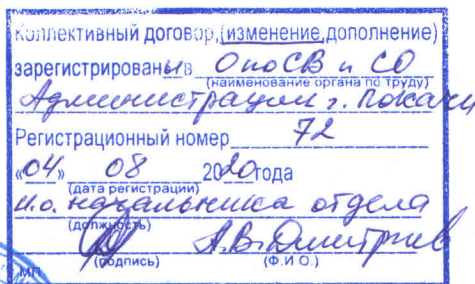 Коллективный договор,(изменение,дополнение)
зарегистрированы в ОпоСВ и СО
(наименование органа по труду)
Администрации г. Покачи
Регистрационный номер 72
«04» 08 2020года
(дата регистрации)
и.о. начальника отдела
(должность)
А.В. Дмитриев
(подпись) (Ф.И О.)
МП